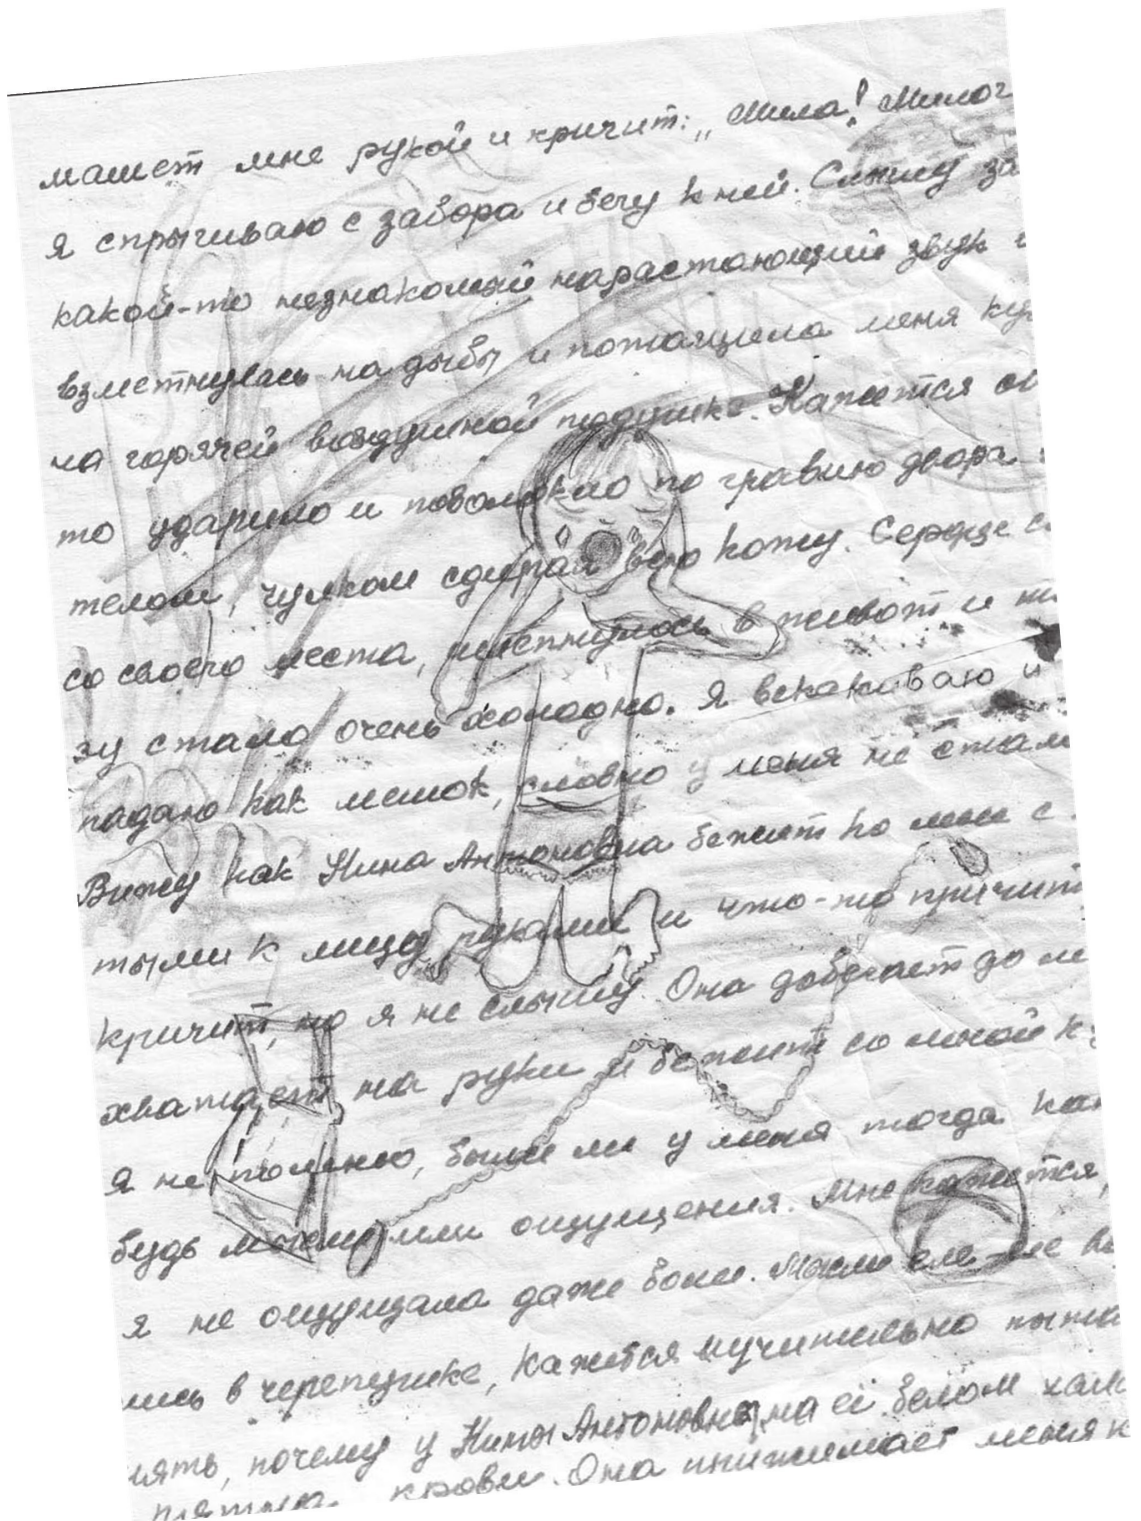 машет мне рукой и кричит: „Мила! Милоч
я спрыгиваю с забора и бегу к ней. Слышу за
какой-то незнакомый нарастающий звук и
взметнулась на дыбы и потащила меня ку
на горячей воздушной подушке. Кажется
то ударило и поволокло по гравию двора
телом, чулком сдирая всю кожу. Сердце
со своего места, в живот и
зу стало очень холодно. Я вскакиваю и
падаю как мешок, словно у меня не стало
Вижу как Нина Антоновна бежит ко мне с
тыми к лицу руками и что-то кричит
кричит, но я не слышу. Она добегает до м
хватает на руки и бежит со мной к
Я не помню, были ли у меня тогда как
будь мысли или ощущения. Мне кажется,
я не ощущала даже боли. Мысли еле-еле
лись в черепушке, кажется мучительно пыта
нять, почему у Нины Антоновны на её белом хала
пятна крови. Она прижимает меня к